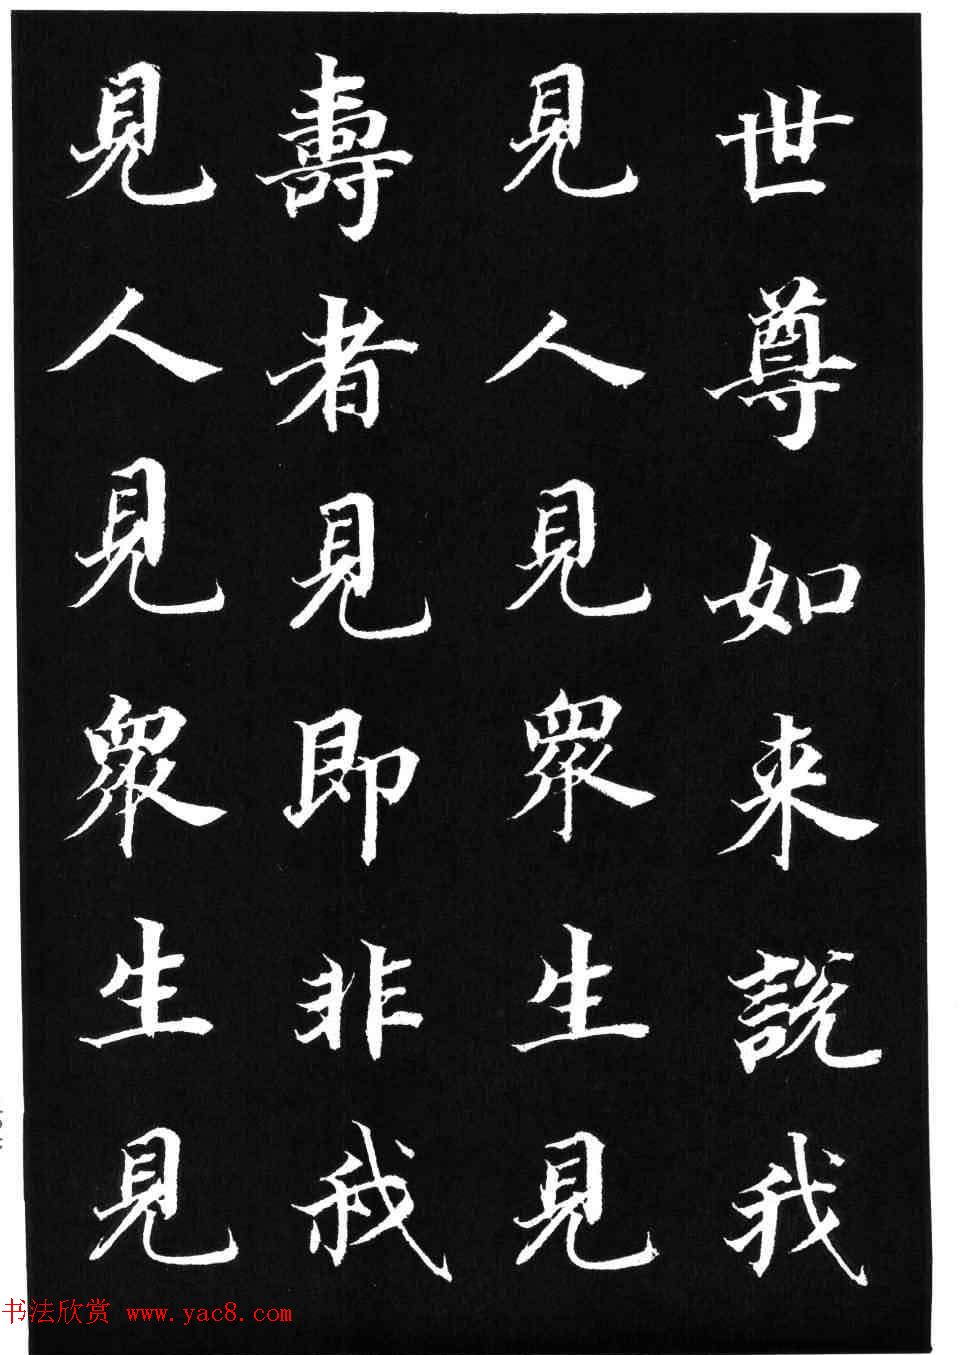 世尊如来說我
見人見衆生見
壽者見即非我
見人見衆生見
书法欣赏 www.yac8.com